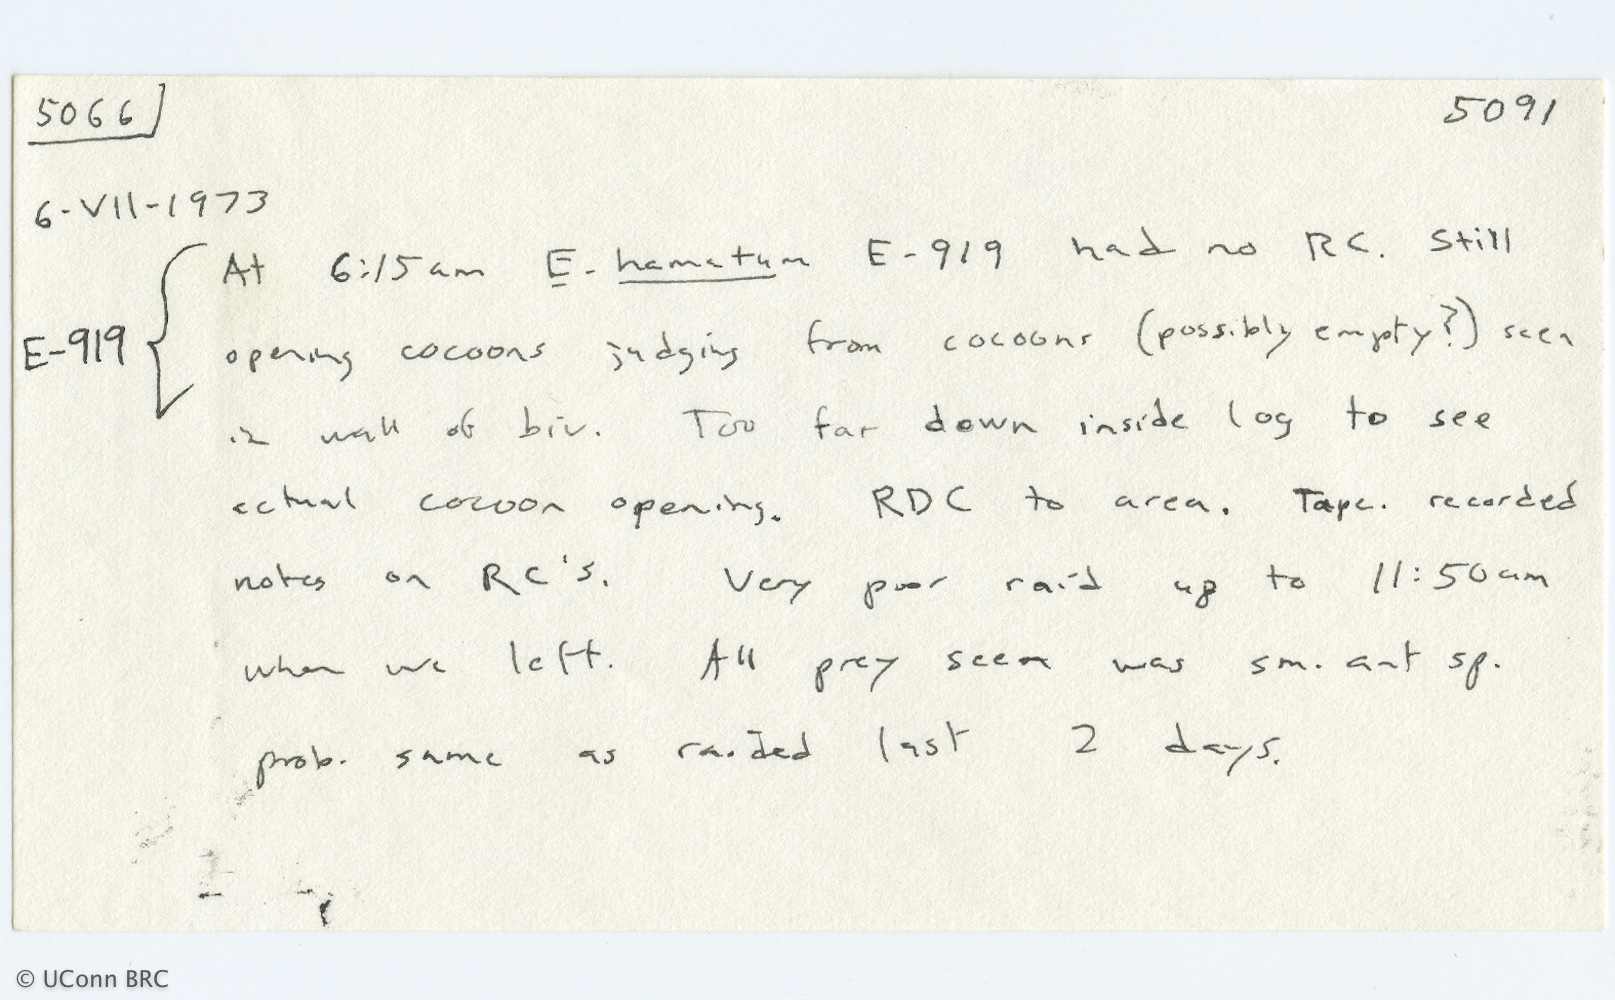 5066 5091
6-VII-1973
At 6:15am E. hamatum E-919 had no RC. Still
E-919 opening cocoons judging from cocoons (possibly empty?) seen
in wall of biv. Too far down inside log to see
actual cocoon opening. RDC to area. Tape. recorded
notes on RC's. Very poor raid up to 11:50am
when we left. All prey seen was sm. ant sp.
prob. same as raided last 2 days.
© UConn BRC